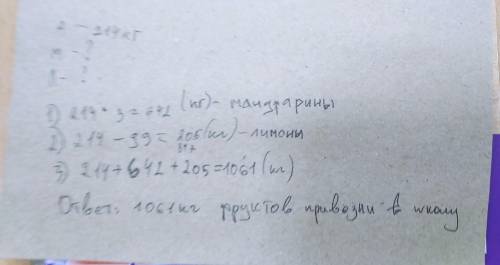 а - 214 кг
м - ?
л - ?
1) 214 * 3 = 642 (кг) - мандарины
2) 214 - 39 = 205 (кг) - лимоны
3) 214 + 642 + 205 = 1061 (кг)
Ответ: 1061 кг фруктов привозни в школу